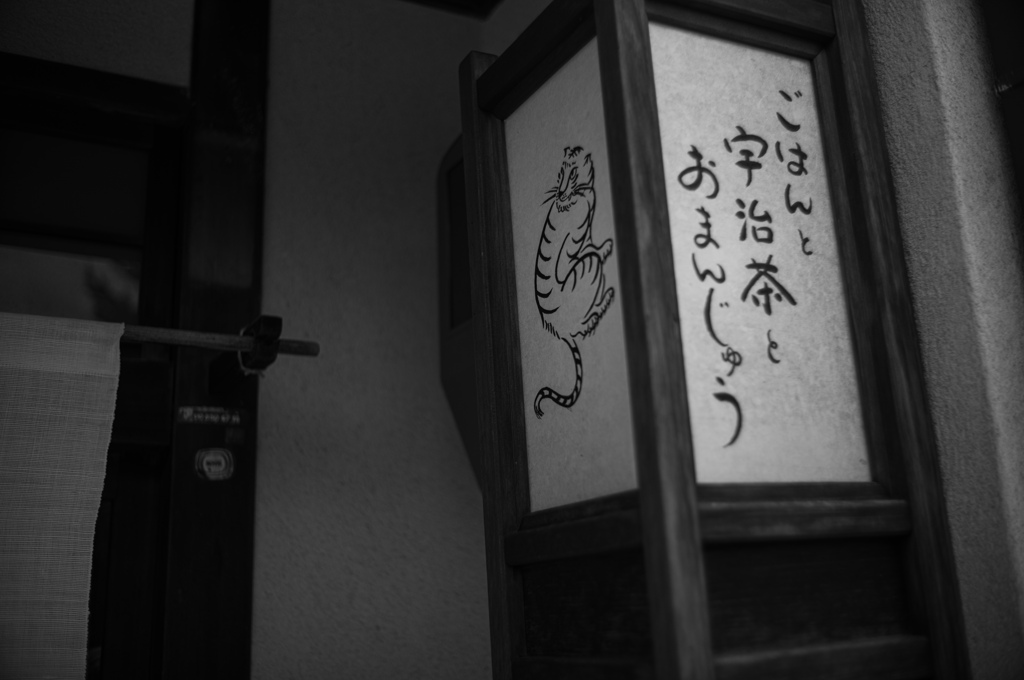 ごはんと
宇治茶と
おまんじゅう